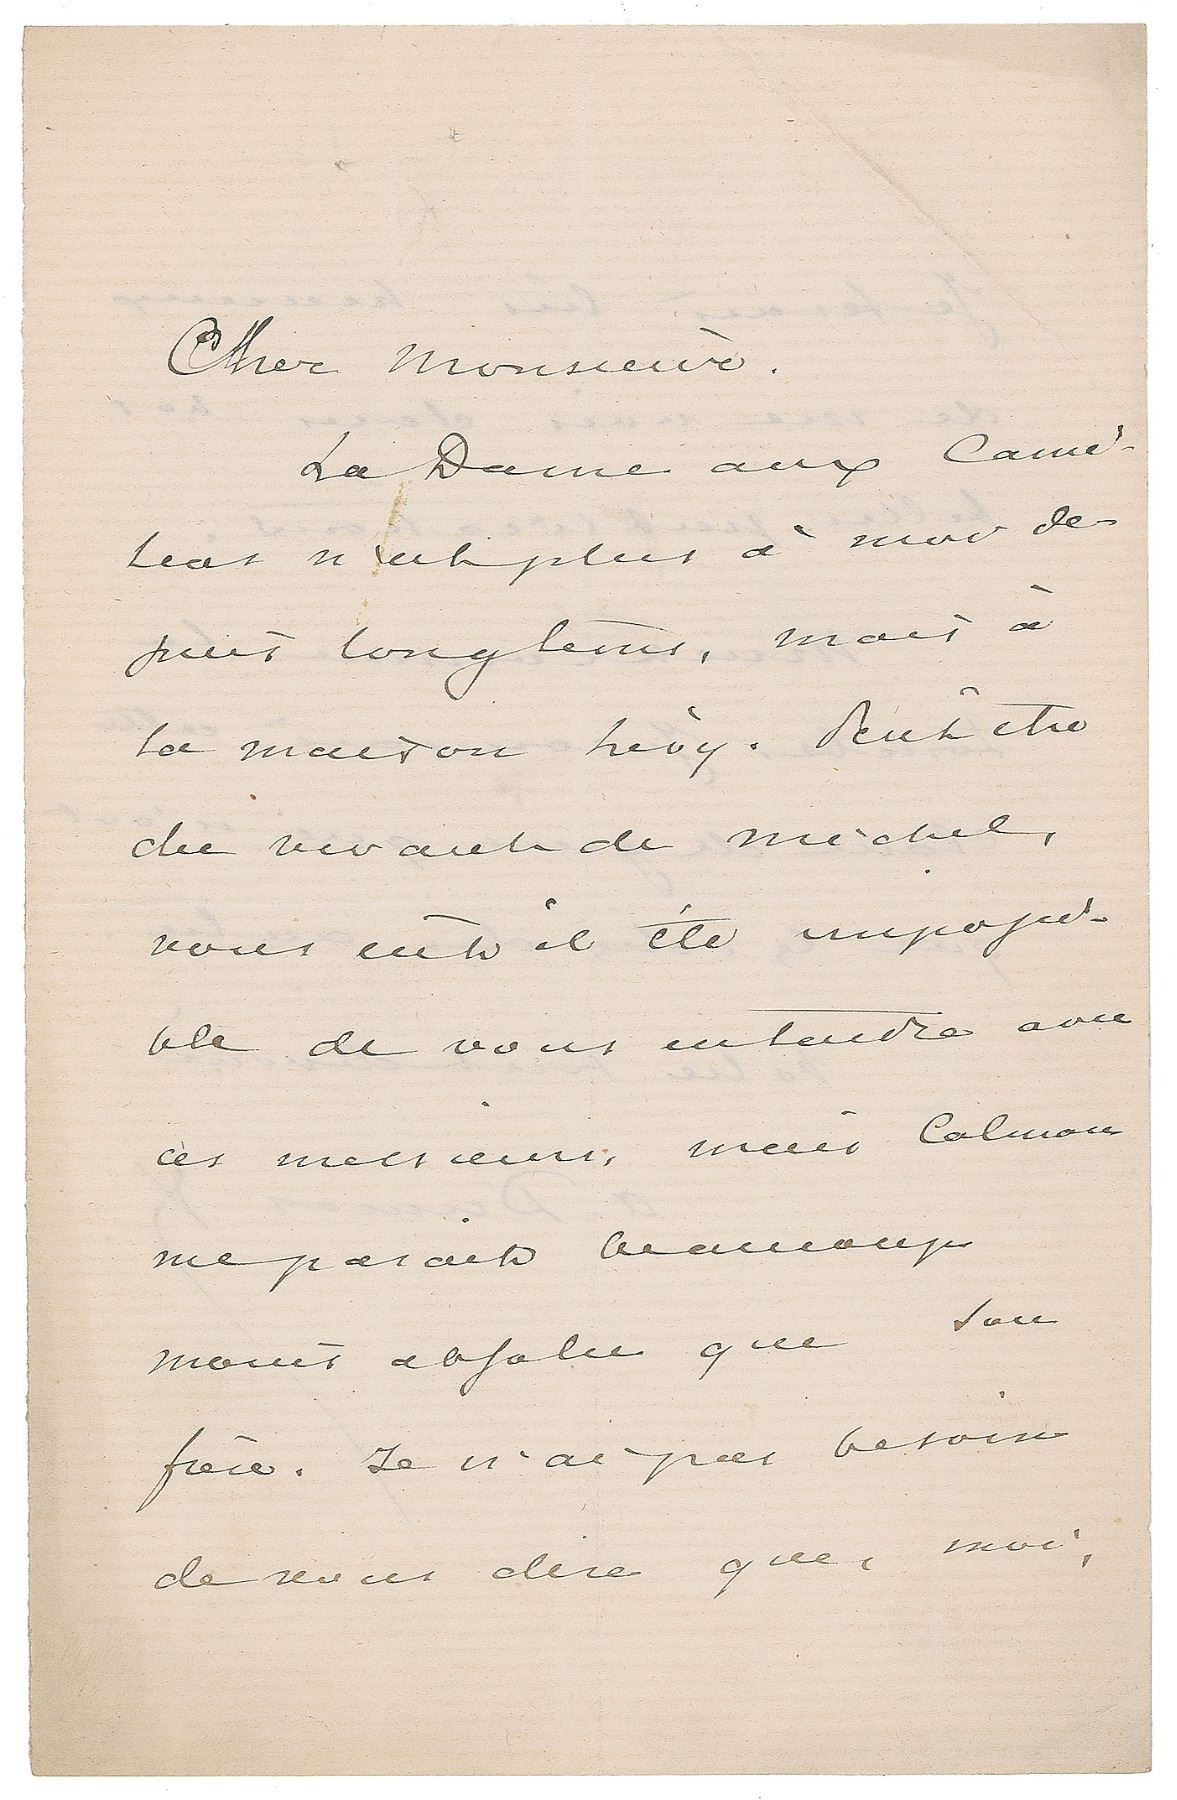 Cher Monsieur.
La Dame aux Camé-
lias n'est plus à moi de-
puis longtems, mais à
la maison Lévy. Peut être
du vivant de Michel,
vous eut il été impossi-
ble de vous entendre avec
ces messieurs, mais Calmann
me parait beaucoup
moins absolu que son
frère. Je n'ai pas besoin
de vous dire que, moi,